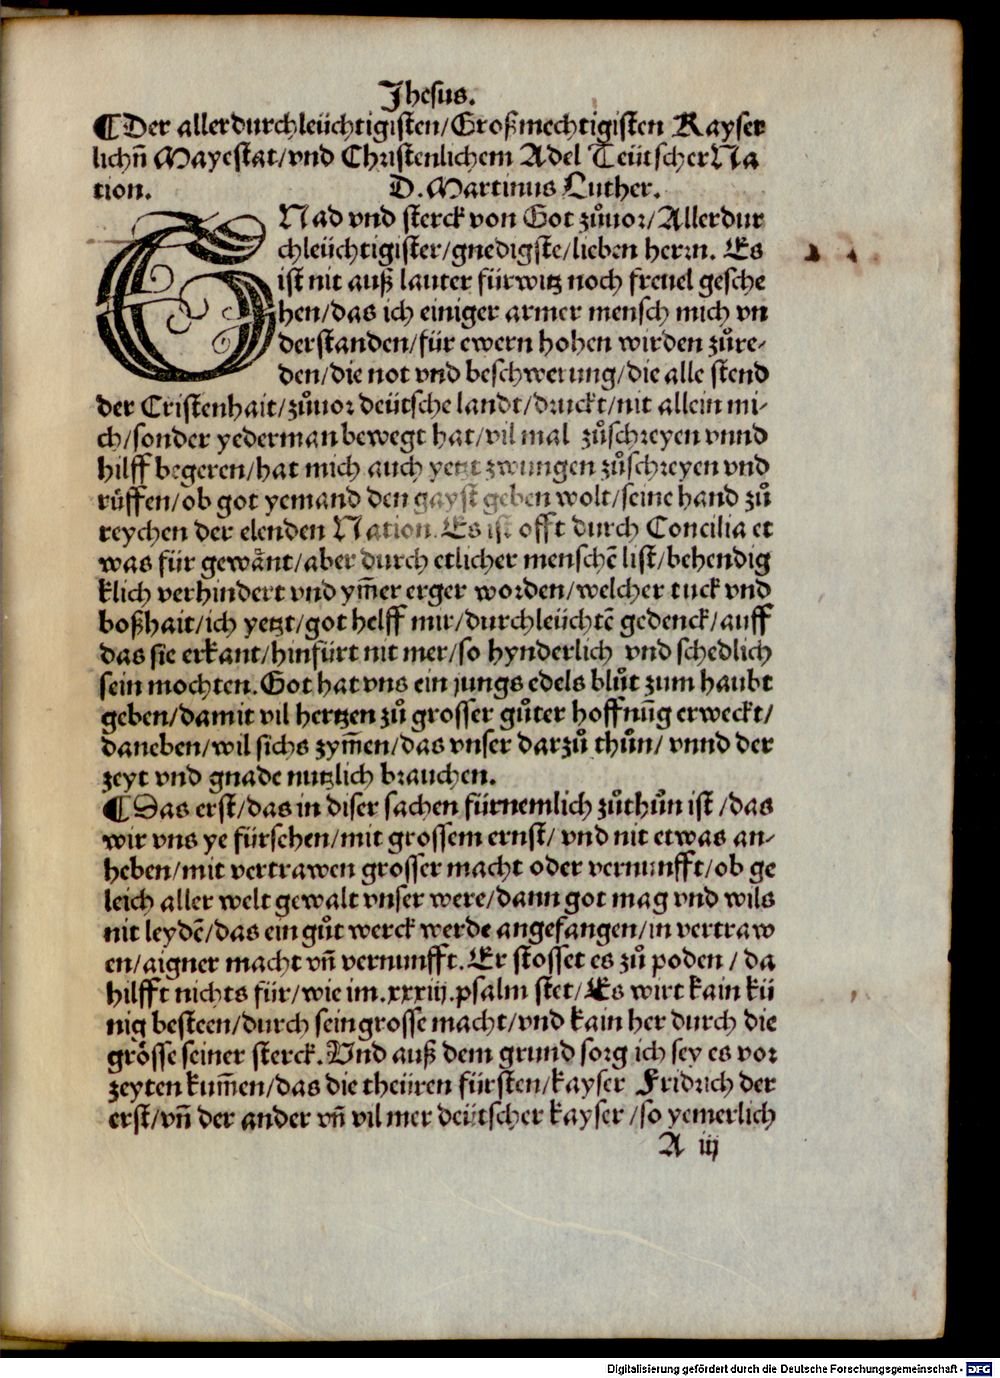 Jhesus.
¶Der allerdurchleüchtigisten/Großmechtigisten Kayser
lichñ Mayestat/vnd Christenlichem Adel Teütscher Na
tion. D. Martinus Luther.
GNad vnd sterck von Got zůuor/Allerdur
chleüchtigister/gnedigste/lieben herrn. Es
ist nit auß lauter fürwitz noch freuel gesche
hen/das ich einiger armer mensch mich vn
derstanden/für ewern hohen wirden zůre-
den/die not vnd beschwerung/die alle stend
der Cristenhait/zůuor deütsche landt/druckt/nit allein mi-
ch/sonder yederman bewegt hat/vil mal zůschreyen vnnd
hilff begeren/hat mich auch yetzt zwungen zůschreyen vnd
růffen/ob got yemand den gayst geben wolt/seine hand zů
reychen der elenden Nation. Es ist offt durch Concilia et
was für gewãnt/aber durch etlicher menschẽ list/behendig
klich verhindert vnd ym̃er erger worden/welcher tuck vnd
boßhait/ich yetzt/got helff mir/durchleüchtẽ gedenck/auff
das sie erkant/hinfürt nit mer/so hynderlich vnd schedlich
sein mochten. Got hat vns ein jungs edels blůt zum haubt
geben/damit vil hertzen zů grosser gůter hoffnũg erweckt/
daneben/wil sichs zym̃en/das vnser darzů thůn/ vnnd der
zeyt vnd gnade nutzlich brauchen.
¶Das erst/das in diser sachen fürnemlich zůthůn ist/das
wir vns ye fürsehen/mit grossem ernst/ vnd nit etwas an-
heben/mit vertrawen grosser macht oder vernunfft/ob ge
leich aller welt gewalt vnser were/dann got mag vnd wils
nit leydẽ/das ein gůt werck werde angefangen/in vertraw
en/aigner macht vñ vernunfft. Er stosset es zů poden/da
hilfft nichts für/wie im.xxxiij.psalm stet/Es wirt kain kü
nig besteen/durch sein grosse macht/vnd kain her durch die
grösse seiner sterck. Vnd auß dem grund sorg ich sey es vor
zeyten kum̃en/das die theüren fürsten/kayser Fridrich der
erst/vñ der ander vñ vil mer deütscher kayser/so yemerlich
A iij
Digitalisierung gefördert durch die Deutsche Forschungsgemeinschaft - DFG